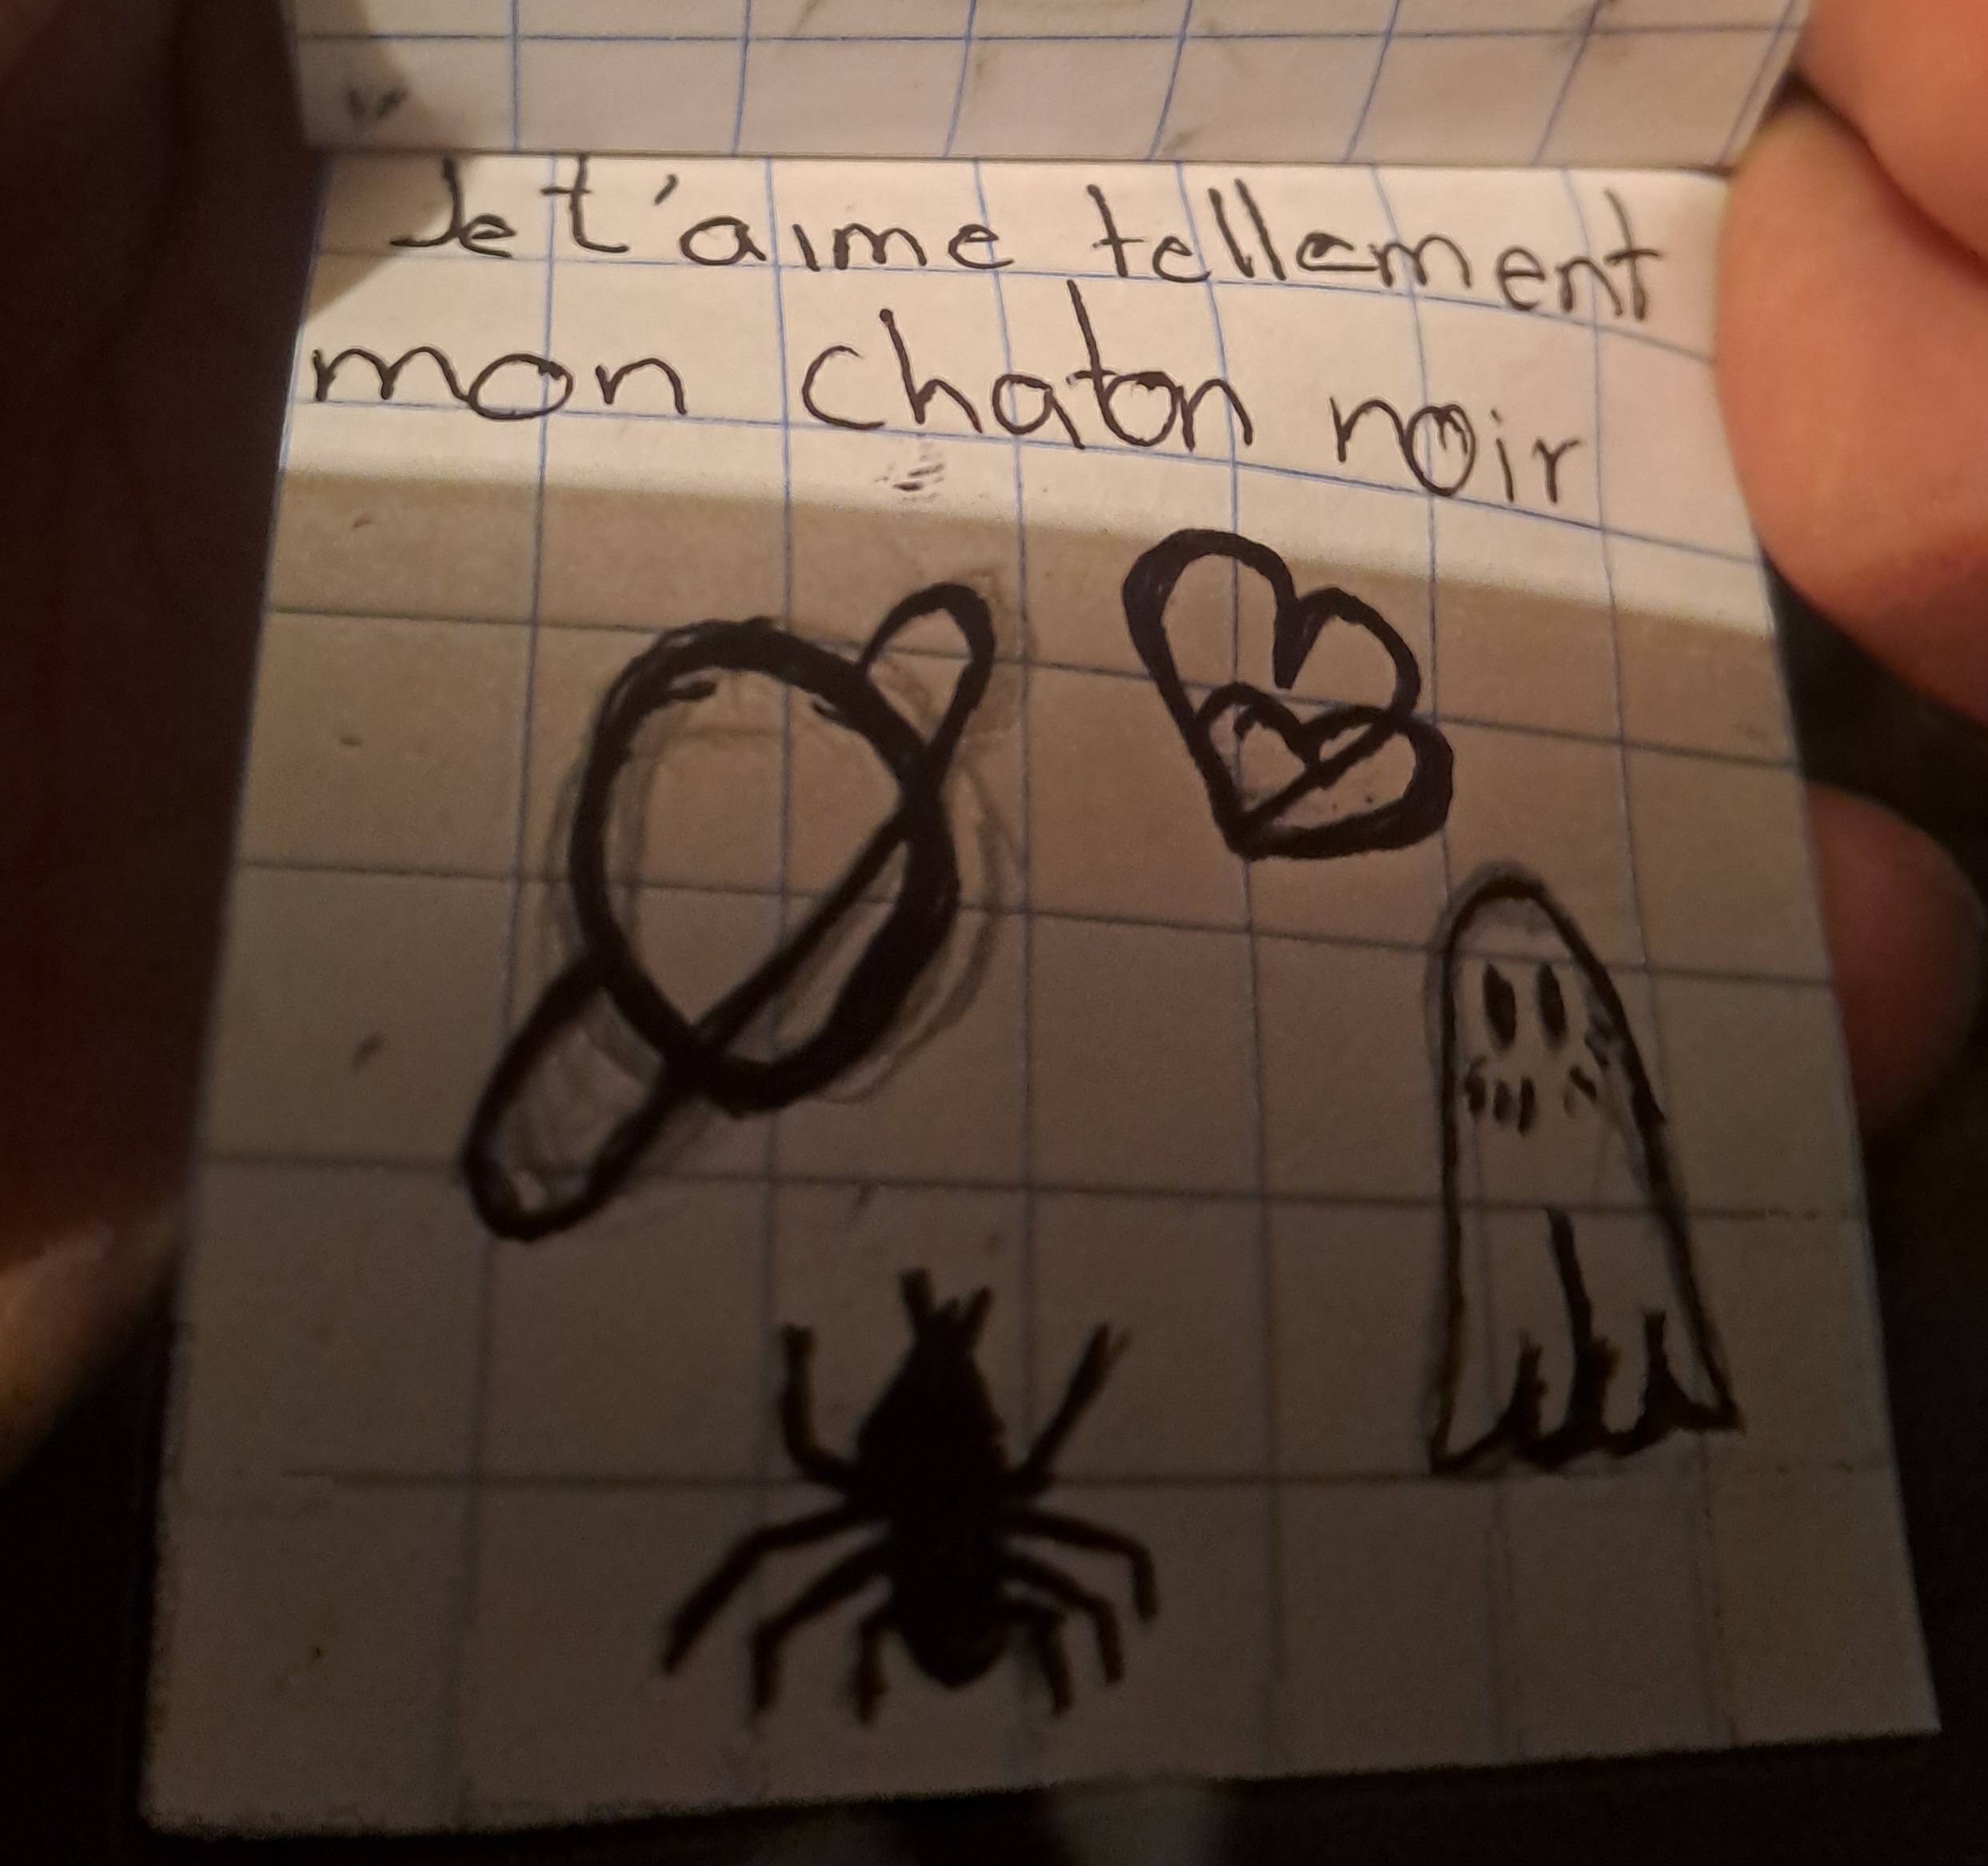 Je t'aime tellement
mon chaton noir